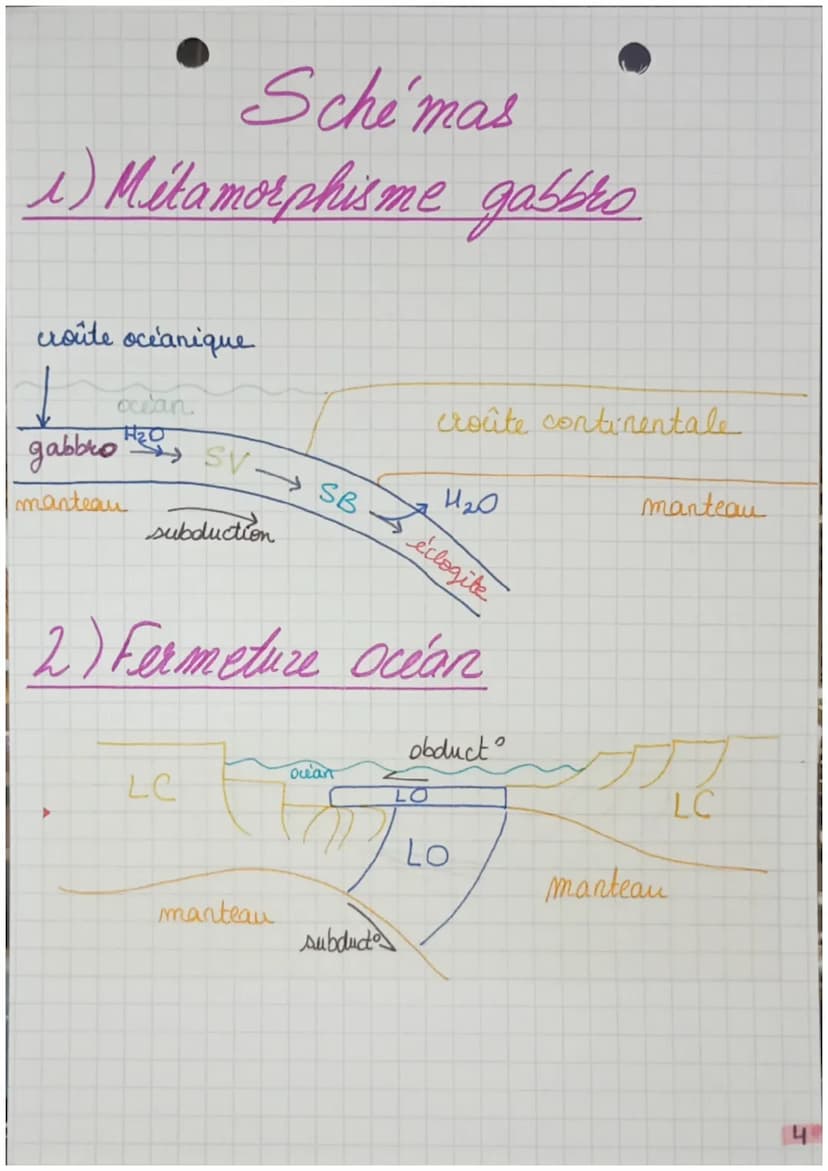 Schémas
1) Métamorphisme gabbro
croûte océanique
océan
croûte continentale
gabbro H2O SV
SB H2O
manteau
manteau
subduction
éclogite
2) Fermeture océan
obduct°
océan
LC
LO
LC
LO
manteau
manteau
subduct°
4